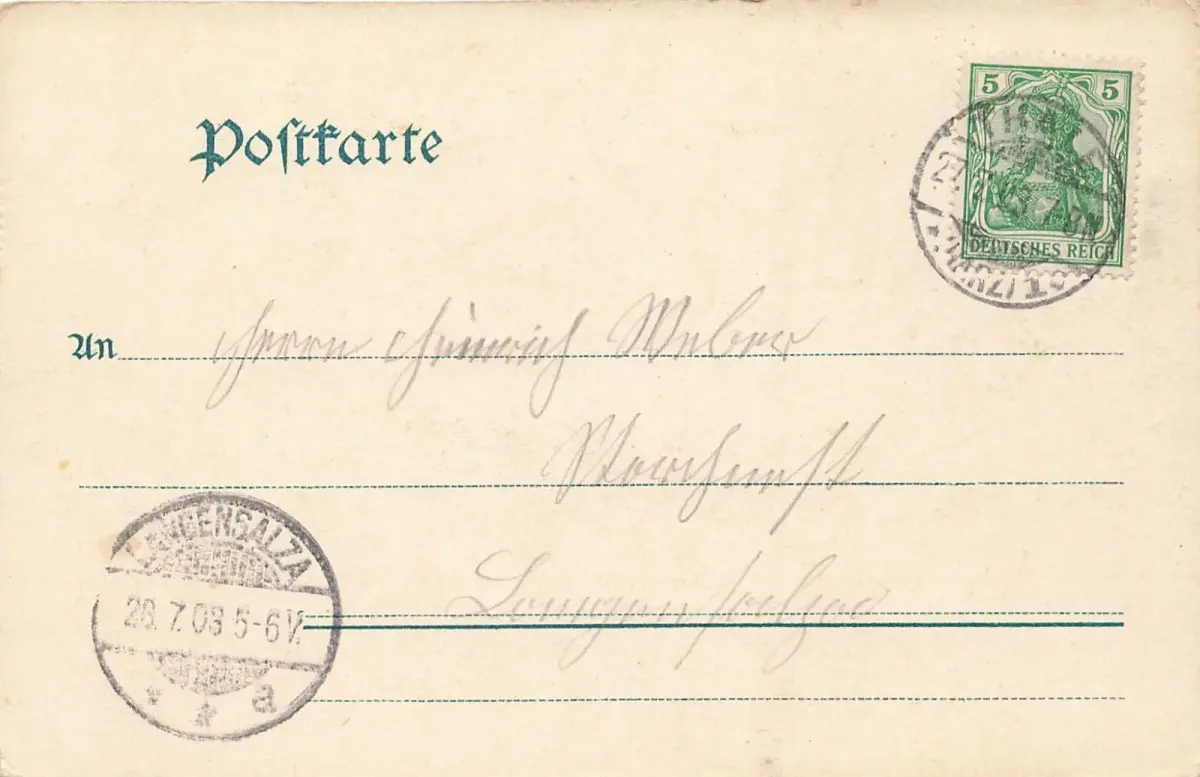 Postkarte
5 5
DEUTSCHES REICH
An Herrn Heinrich Weber
Storchnest
Langensalza
LANGENSALZA
28.7.03 5-6V.
* a